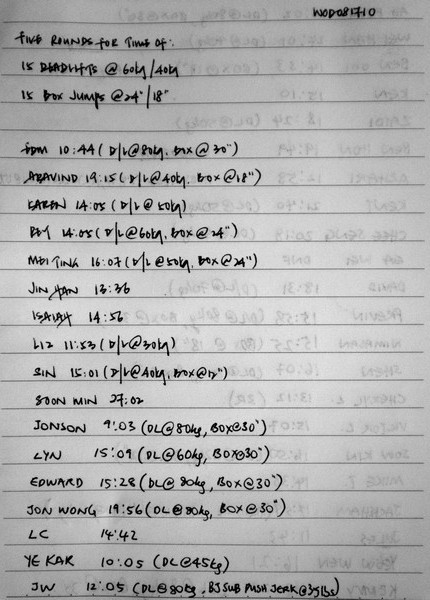 WOD081710
FIVE ROUNDS FOR TIME OF:
15 DEADLIFTS @ 60kg/40kg
15 BOX JUMPS @ 24"/18"
10:44 (D/L@80kg, BOX@30")
ARAVIND 19:15 (D/L@40kg, BOX@18")
KAREN 14:05 (D/L@50kg)
14:05 (D/L@60kg, BOX@24")
MEI TING 16:07 (D/L@50kg, BOX@24")
JIN HAN 13:36
ISAIAH 14:56
LIZ 11:53 (D/L@30kg)
SIN 15:01 (D/L@40kg, BOX@12")
SOON MIN 27:02
JONSON 9:03 (DL@80kg, BOX@30")
LYN 15:09 (DL@60kg, BOX@30")
EDWARD 15:28 (DL@80kg, BOX@30")
JON WONG 19:56 (DL@80kg, BOX@30")
LC 14:42
YE KAR 10:05 (DL@45kg)
JW 12:05 (DL@80kg, BJ SUB PUSH JERK@35lbs)